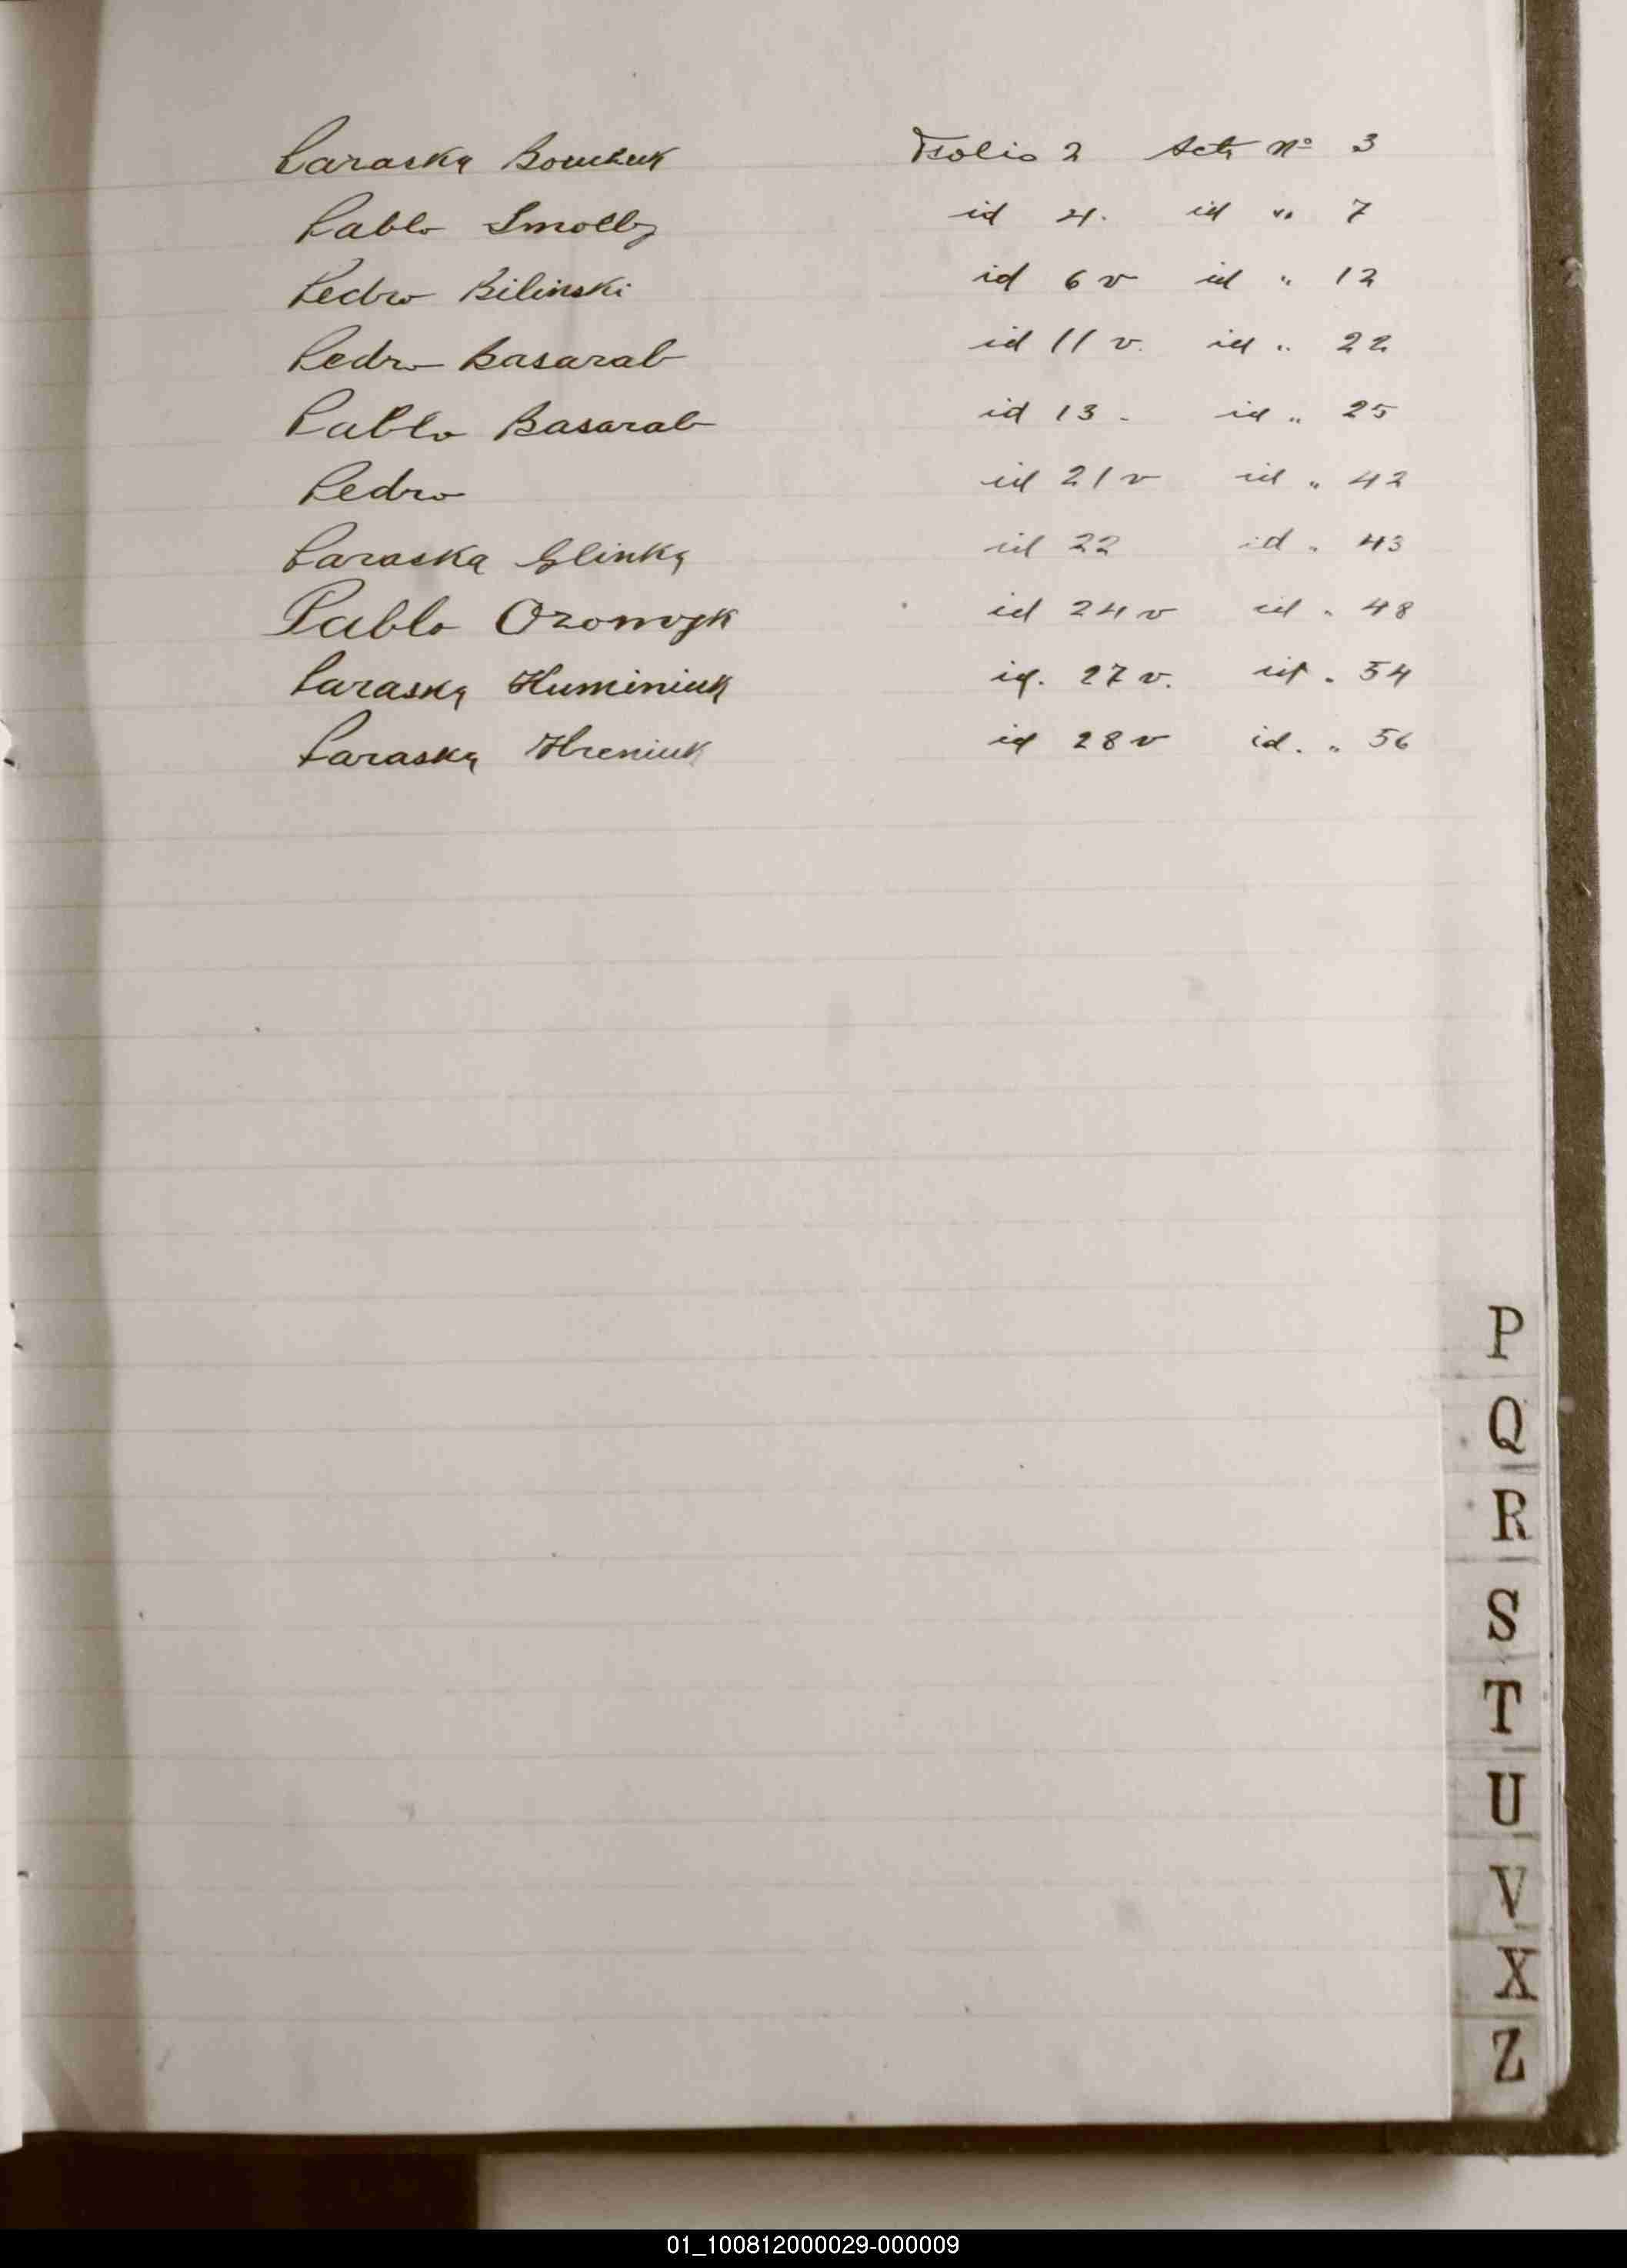 Paraska Bomchuk Folio 2 Acta Nº 3
Pablo Smolly id 4. id " 7
Pedro Bilinski id 6 v id " 12
Pedro Basarab id 11 v. id " 22
Pablo Basarab id 13 - id " 25
Pedro id 21 v id " 42
Paraska Glinka id 22 id " 43
Pablo id 24 v id " 48
Paraska Huminiuk id. 27 v. id " 54
Paraska Hreniuk id 28 v id. " 56
P
Q
R
S
T
U
V
X
Z
01_100812000029-000009